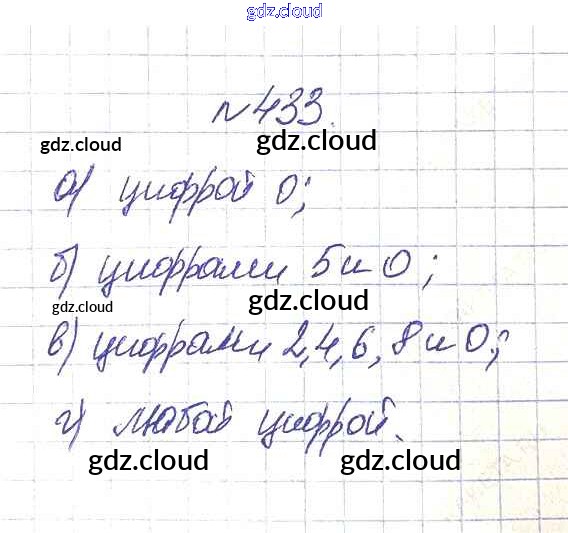 gdz.cloud
№ 433.
gdz.cloud
gdz.cloud
а) цифрой 0;
б) цифрами 5 и 0;
gdz.cloud
gdz.cloud
в) цифрами 2, 4, 6, 8 и 0;
г) любой цифрой.
gdz.cloud
gdz.cloud